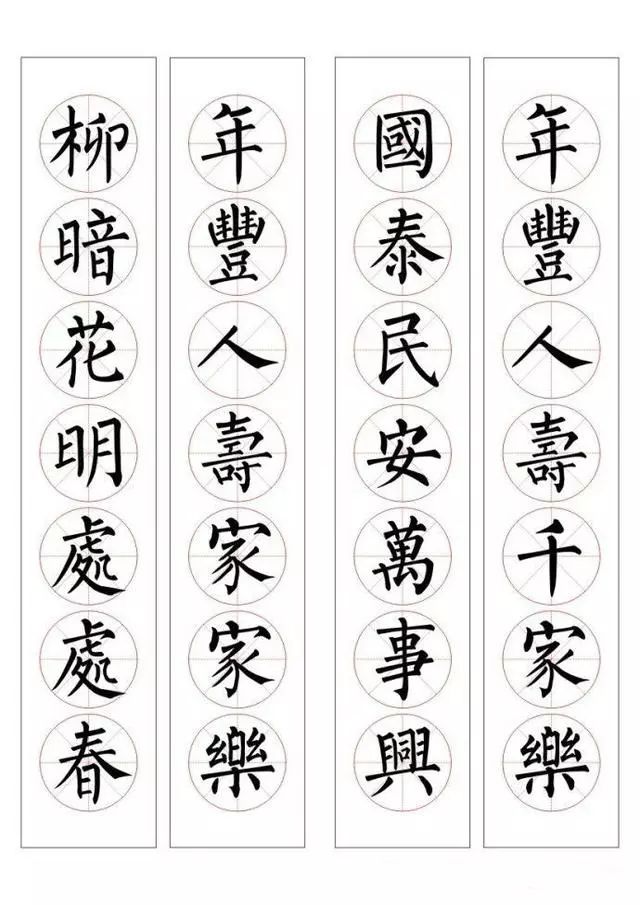 年豐人壽千家樂
國泰民安萬事興
年豐人壽家家樂
柳暗花明處處春